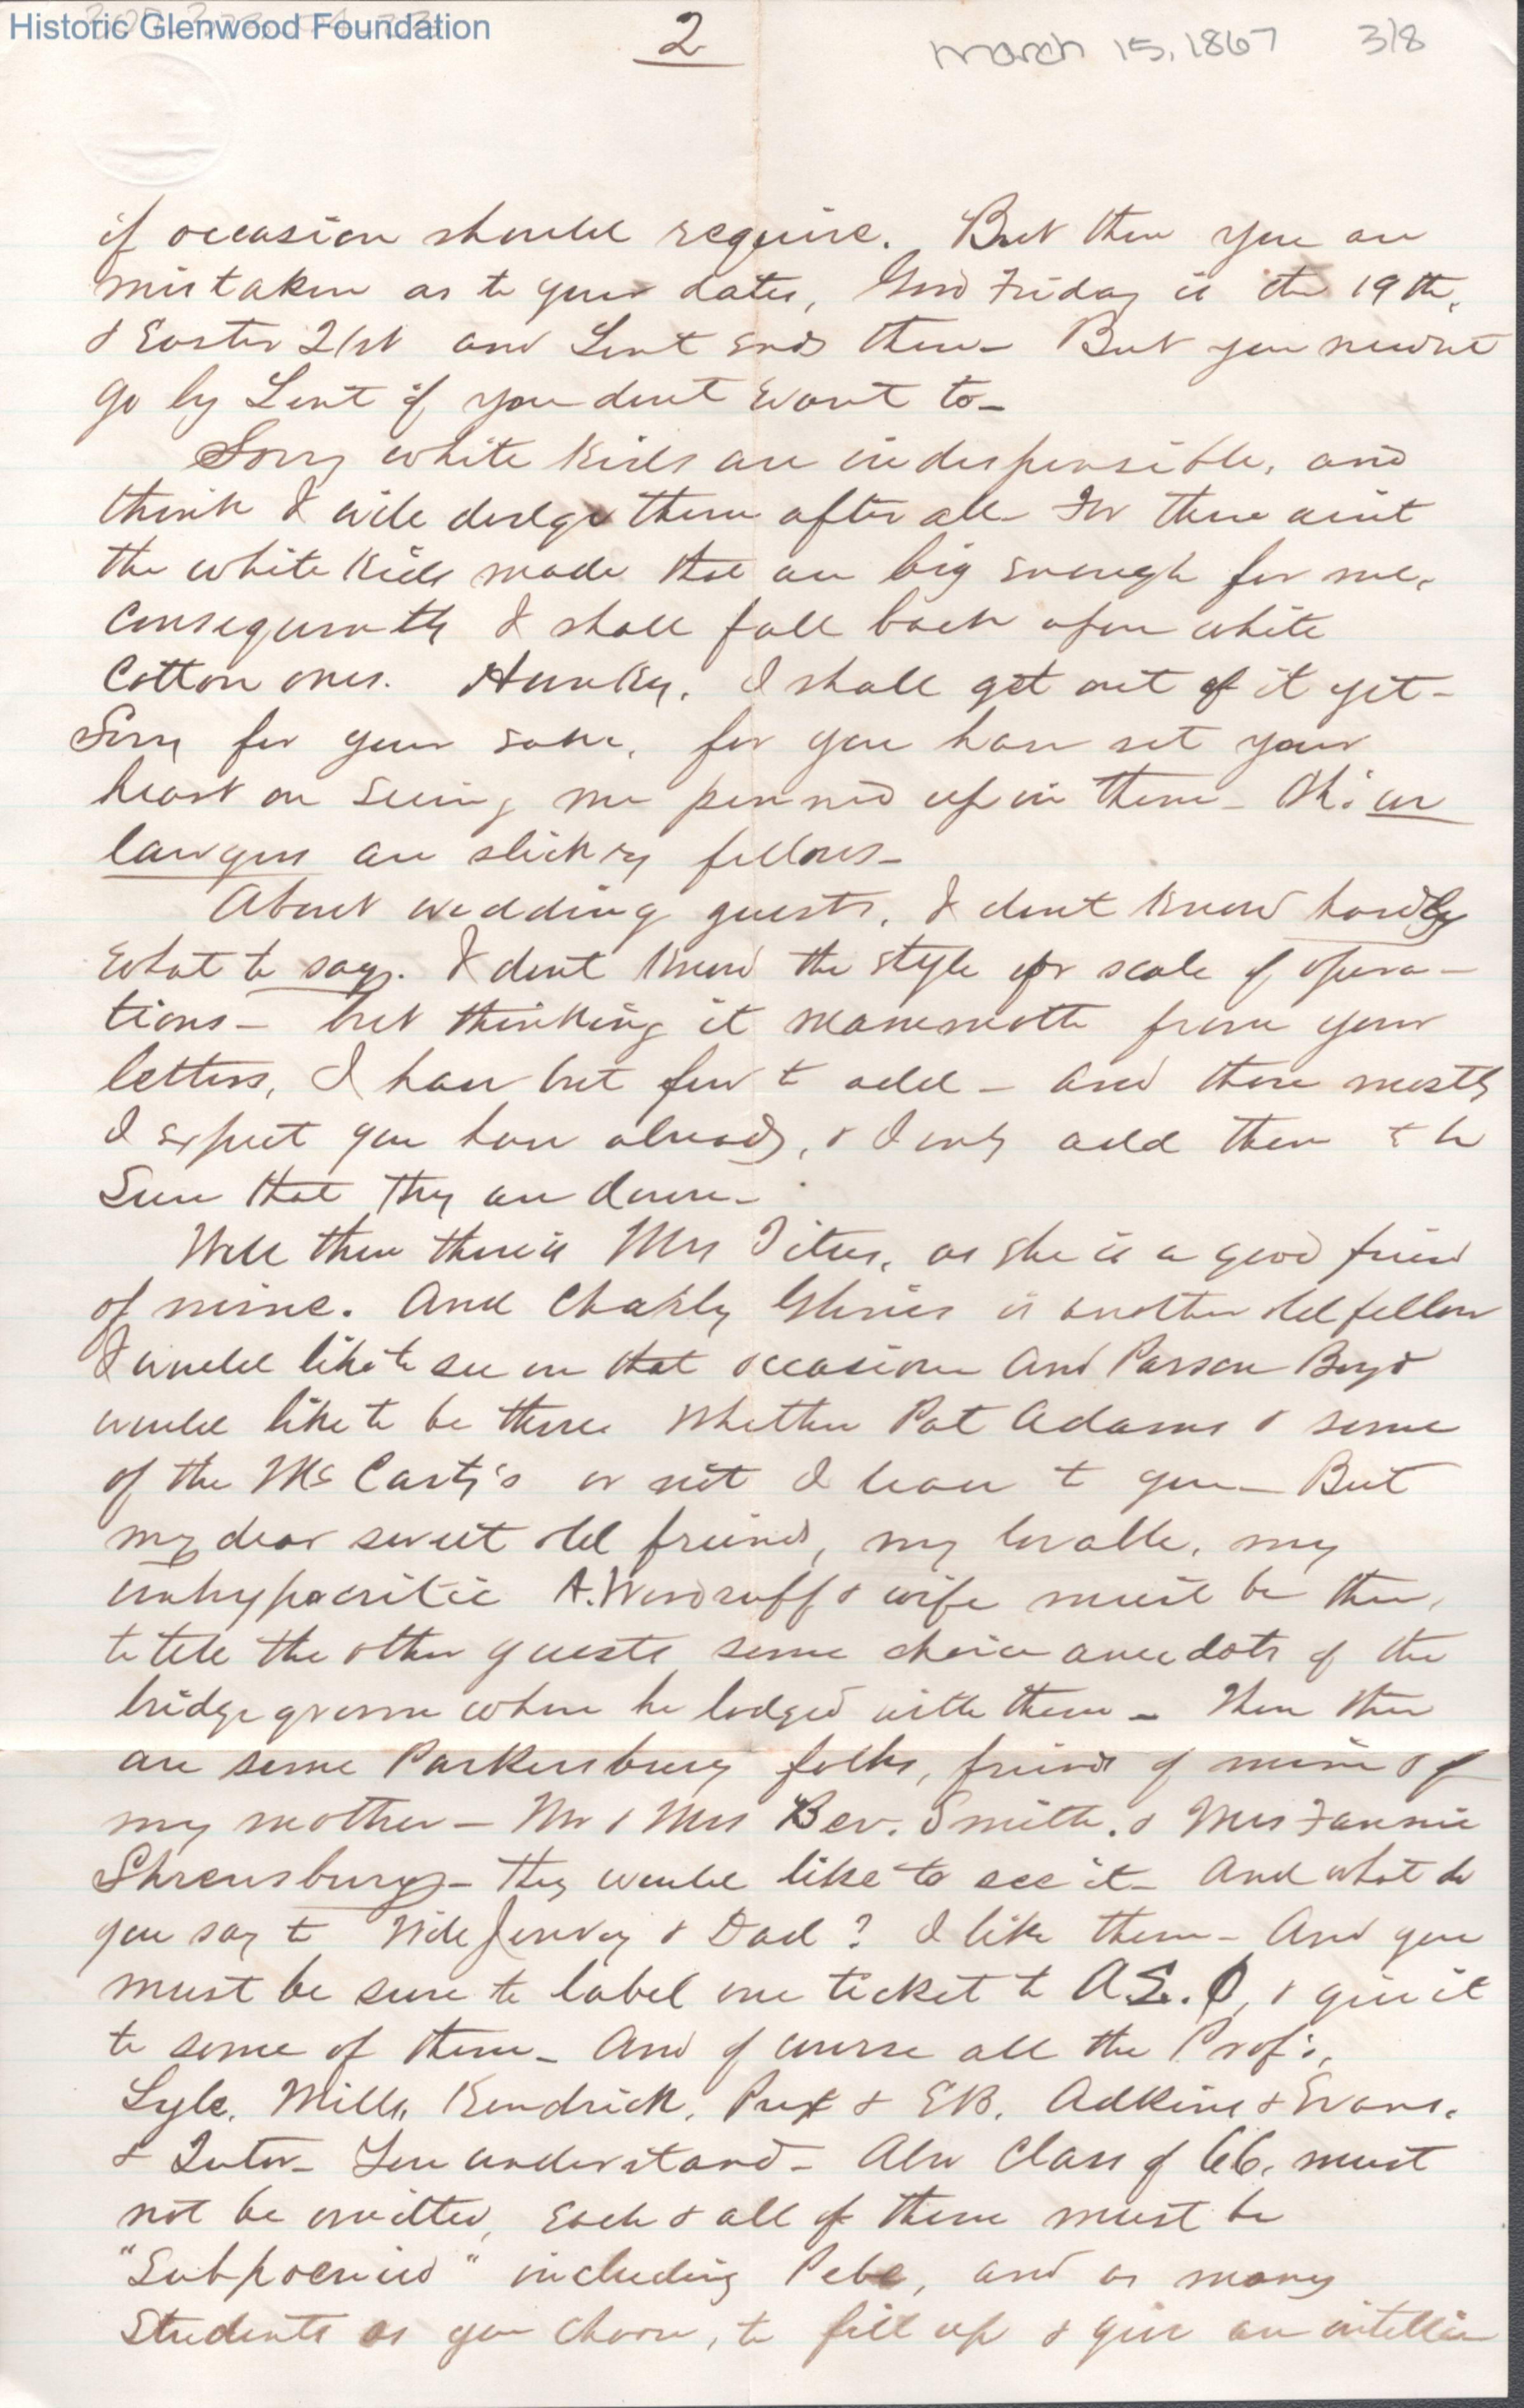 Historic Glenwood Foundation
2
March 15, 1867 3/8
if occasion should require. But then you are
mistaken as to your dates, Good Friday is the 19th,
& Easter 21st and Lent ends then - But you needn't
go by Lent if you dont want to -
Sorry white Kids are indespensible, and
think I will dodge them after all - For there aint
the white Kids made that are big enough for me,
Consequently I shall fall back upon white
Cotton ones. Hunky, I shall get out of it yet -
Sorry for your sake, for you have set your
heart on seeing me penned up in them - Oh! us
lawyers are slickry fellows -
About wedding guests, I dont know hardly
what to say. I dont know the style or scale of opera-
tions - but thinking it mammoth from your
letters, I have but few to add - and these mostly
I expect you have already, & I only add them to be
Sure that they are down -
Well then there is Mrs Titus, as she is a good friend
of mine. And Charley is another old fellow
I would like to see on that occasion And Parson Boyd
would like to be there Whether Pat Adams & some
of the McCarty's or not I leave to you - But
my dear sweet old friend, my lovable, my
unhypocritic A. Woodruff & wife must be there,
to tell the other guests some choice anecdots of the
bridge groom when he lodged with them - Then there
are some Parkersburg folks, friends of mine & of
my mother - Mr & Mrs Bev. Smith, & Mrs Fannie
Shrewsbury - They would like to see it - And what do
you say to Jenvey & Dad? I like them - And you
must be sure to label one ticket to A.S.O, & give it
to some of them - And of course all the Prof's,
Lyle, Mills, Kendrick, Prex & E.B. Adkins & Evans,
& Tutor - You understand - Also Class of 66, must
not be omitted, Each & all of them must be
"Subpoenied" including Pebe, and as many
Students as you choose, to fill up & give an intelli